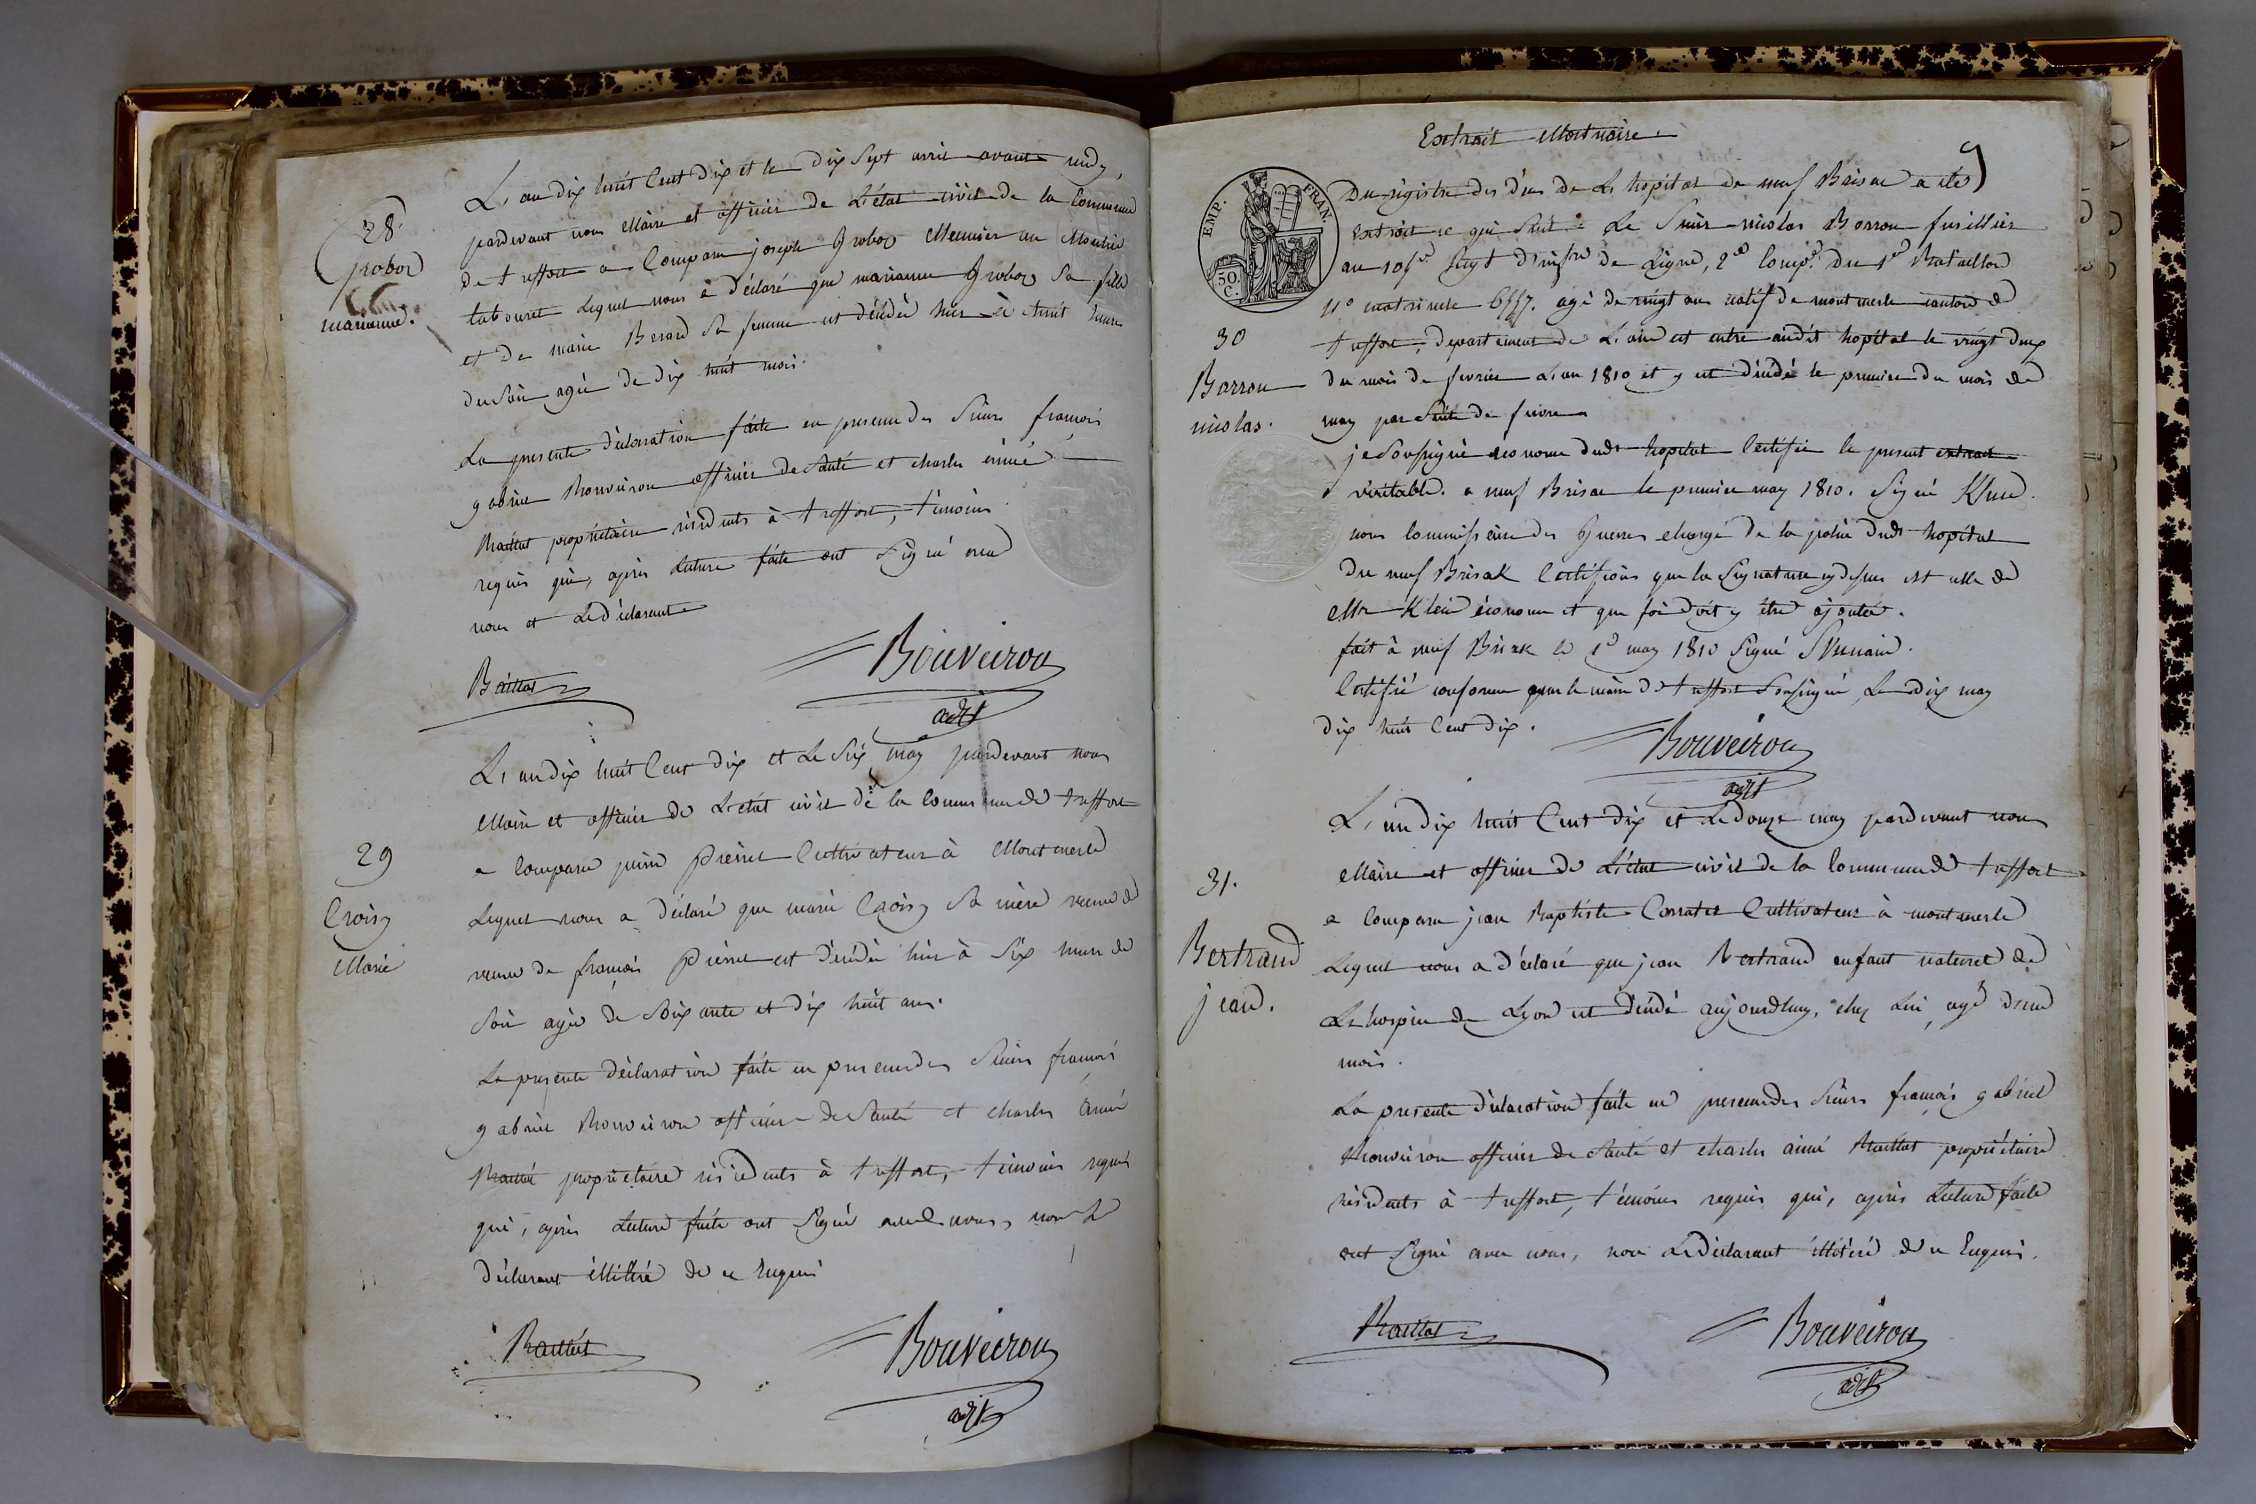 28.
Groboz
marianne.
L'an dix huit Cent dix et le dix Sept avril avant midy,
pardevant nous Maire et officier de L'état civil de la Commune
de treffort a Comparu joseph Groboz Meunier au Moulin
labouret Lequel nous a déclaré que marianne Groboz Sa fille
et de marie Berard Sa femme est décédée hier à huit heures
du Soir agée de dix huit mois.
La presente déclaration faite en presence des Sieurs françois
gabriel Bouveiron officier de Santé et charles aimé
Baillat propriétaire résidents à treffort, témoins
requis qui, après Lecture faite ont Signé avec
nous et Le Déclarant
Baillat Bouveiron
adjt
29
Croisy
Marie
L'an dix huit Cent dix et Le Six may pardevant nous
Maire et officier de L'état civil de la Commune de treffort
a Comparu pierre Cultivateur à Montmerle
Lequel nous a déclaré que marie Croisy Sa mère veuve de
veuve de françois est décédée hier à Six heures de
Soir agée de Soixante et dix huit ans.
La presente déclaration faite en presence des Sieurs françois
gabriel Bouveiron officier de Santé et charles aimé
propriétaire résidents à treffort, témoins requis
qui, après Lecture faite ont Signé avec nous, non Le
déclarant illitéré de ce Enquis
Baillat Bouveiron
adjt
Extrait Mortuaire.
9
EMP. FRAN.
50 C.
30
Barron
nicolas.
Du régistre des décès de L'hopital de neuf Brisac a été
extrait ce qui Suit: Le Sieur nicolas Borron fusillier
au 105e Regt d'infrie de Ligne, 2e Compe du 1er Bataillon
no matricule agé de vingt ans natif de montmerle canton de
treffort, departement de L'ain est entré audit hopital le vingt deux
du mois de fevrier L'an 1810 et y est décédé le premier du mois de
may par Suite de fievre
je Soussigné économe dudt hopital Certifie le present extrait
véritable. a neuf Brisac le premier may 1810. Signé Klein.
nous Commissaire des Guerres chargé de la police dudt hopital
de neuf Brisak Certifions que la Signature cy dessus est celle de
Mr Klein économe et que foi doit y être ajoutée.
fait à neuf Brisak le 1er may 1810 Signé
Certifié conforme par le maire de treffort Soussigné, Le dix may
dix huit Cent dix.
Bouveiron
adjt
31.
Bertrand
jean.
L'an dix huit Cent dix et Le douze may pardevant nous
Maire et officier de L'état civil de la Commune de treffort
a Comparu jean Baptiste Corrater Cultivateur à montmerle
Lequel nous a déclaré que jean Bertrand enfant naturel de
L'hospice de Lyon est décédé aujourdhuy, chez Lui, agé d'un
mois.
La presente déclaration faite en presence des Sieurs françois gabriel
Bouveiron officier de Santé et charles aimé Baillat propriétaire
résidents à treffort, témoins requis qui, après Lecture faite
ont Signé avec nous, non Le déclarant illitéré de ce Enquis.
Baillat Bouveiron
adjt